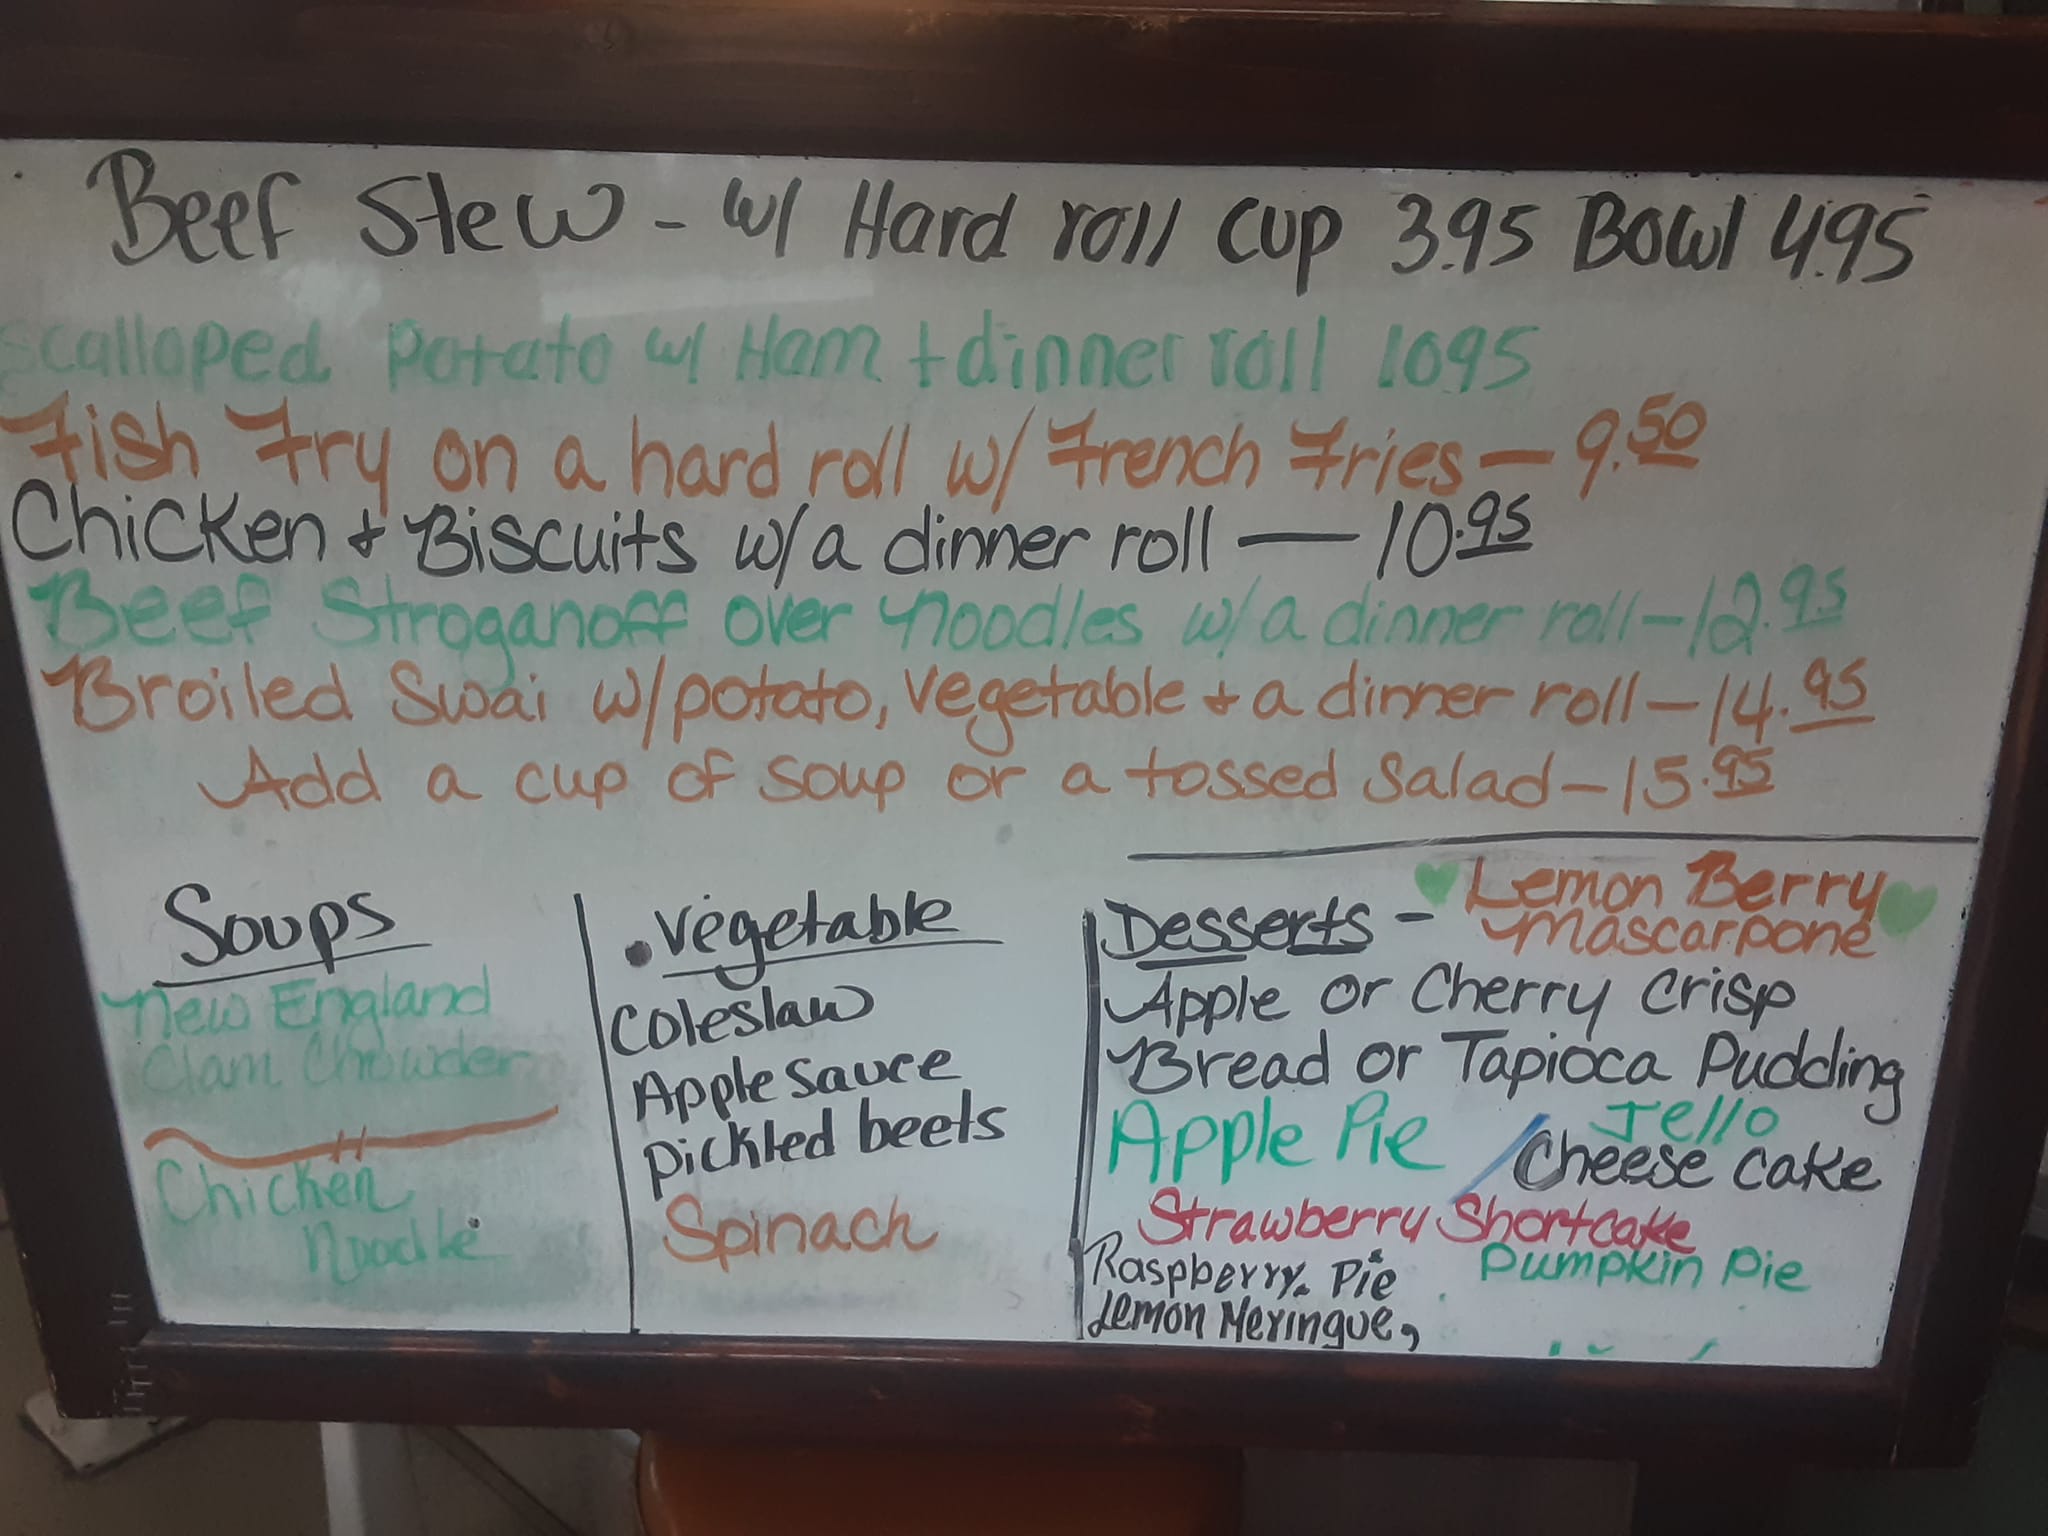 Beef Stew - w/ Hard roll cup 3.95 Bowl 4.95
Scalloped Potato w/ Ham + dinner roll 1095
Fish Fry on a hard roll w/ French Fries — 9.50
Chicken + Biscuits w/a dinner roll — 10.95
Beef Stroganoff over Noodles w/a dinner roll - 12.95
Broiled Swai w/potato, vegetable + a dinner roll - 14.95
Add a cup of soup or a tossed salad - 15.95
Soups
New England
Clam Chowder
Chicken
Noodle
Vegetable
Coleslaw
Apple Sauce
Pickled beets
Spinach
Desserts - Lemon Berry
Mascarpone
Apple or Cherry Crisp
Bread or Tapioca Pudding
Jello
Apple Pie / Cheese cake
Strawberry Shortcake
Raspberry Pie
Pumpkin Pie
Lemon Meringue,